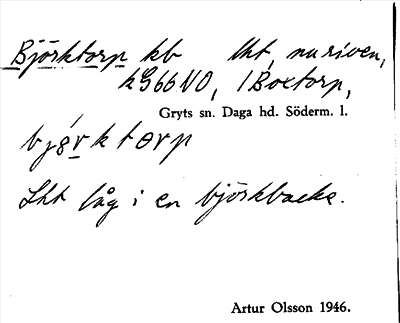 Björktorp kb lht, nu riven,
kG66NO, i Boxtorp,
Gryts sn. Daga hd. Söderm. l.
björktorp
Lht låg i en björkbacke.
Artur Olsson 1946.